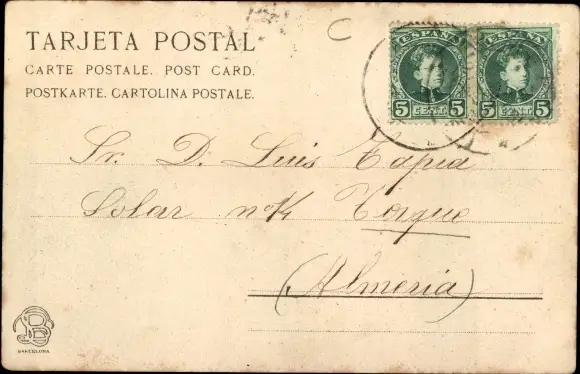 TARJETA POSTAL
CARTE POSTALE. POST CARD.
POSTKARTE. CARTOLINA POSTALE.
C
ESPAÑA ESPAÑA
5 CENT. 5 5 CENT. 5
Sr. D. Luis Tapia
Solar nº 4
(Almeria)
BARCELONA